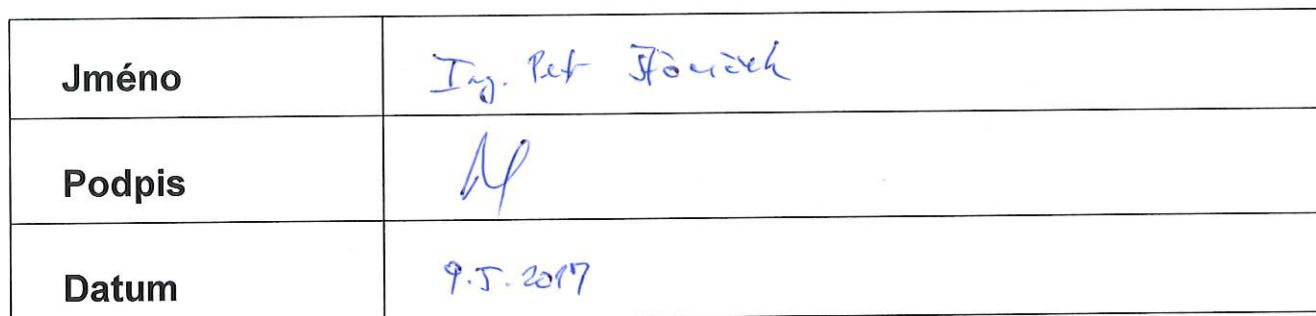 Jméno Ing. Petr
Podpis
Datum 9.5.2017